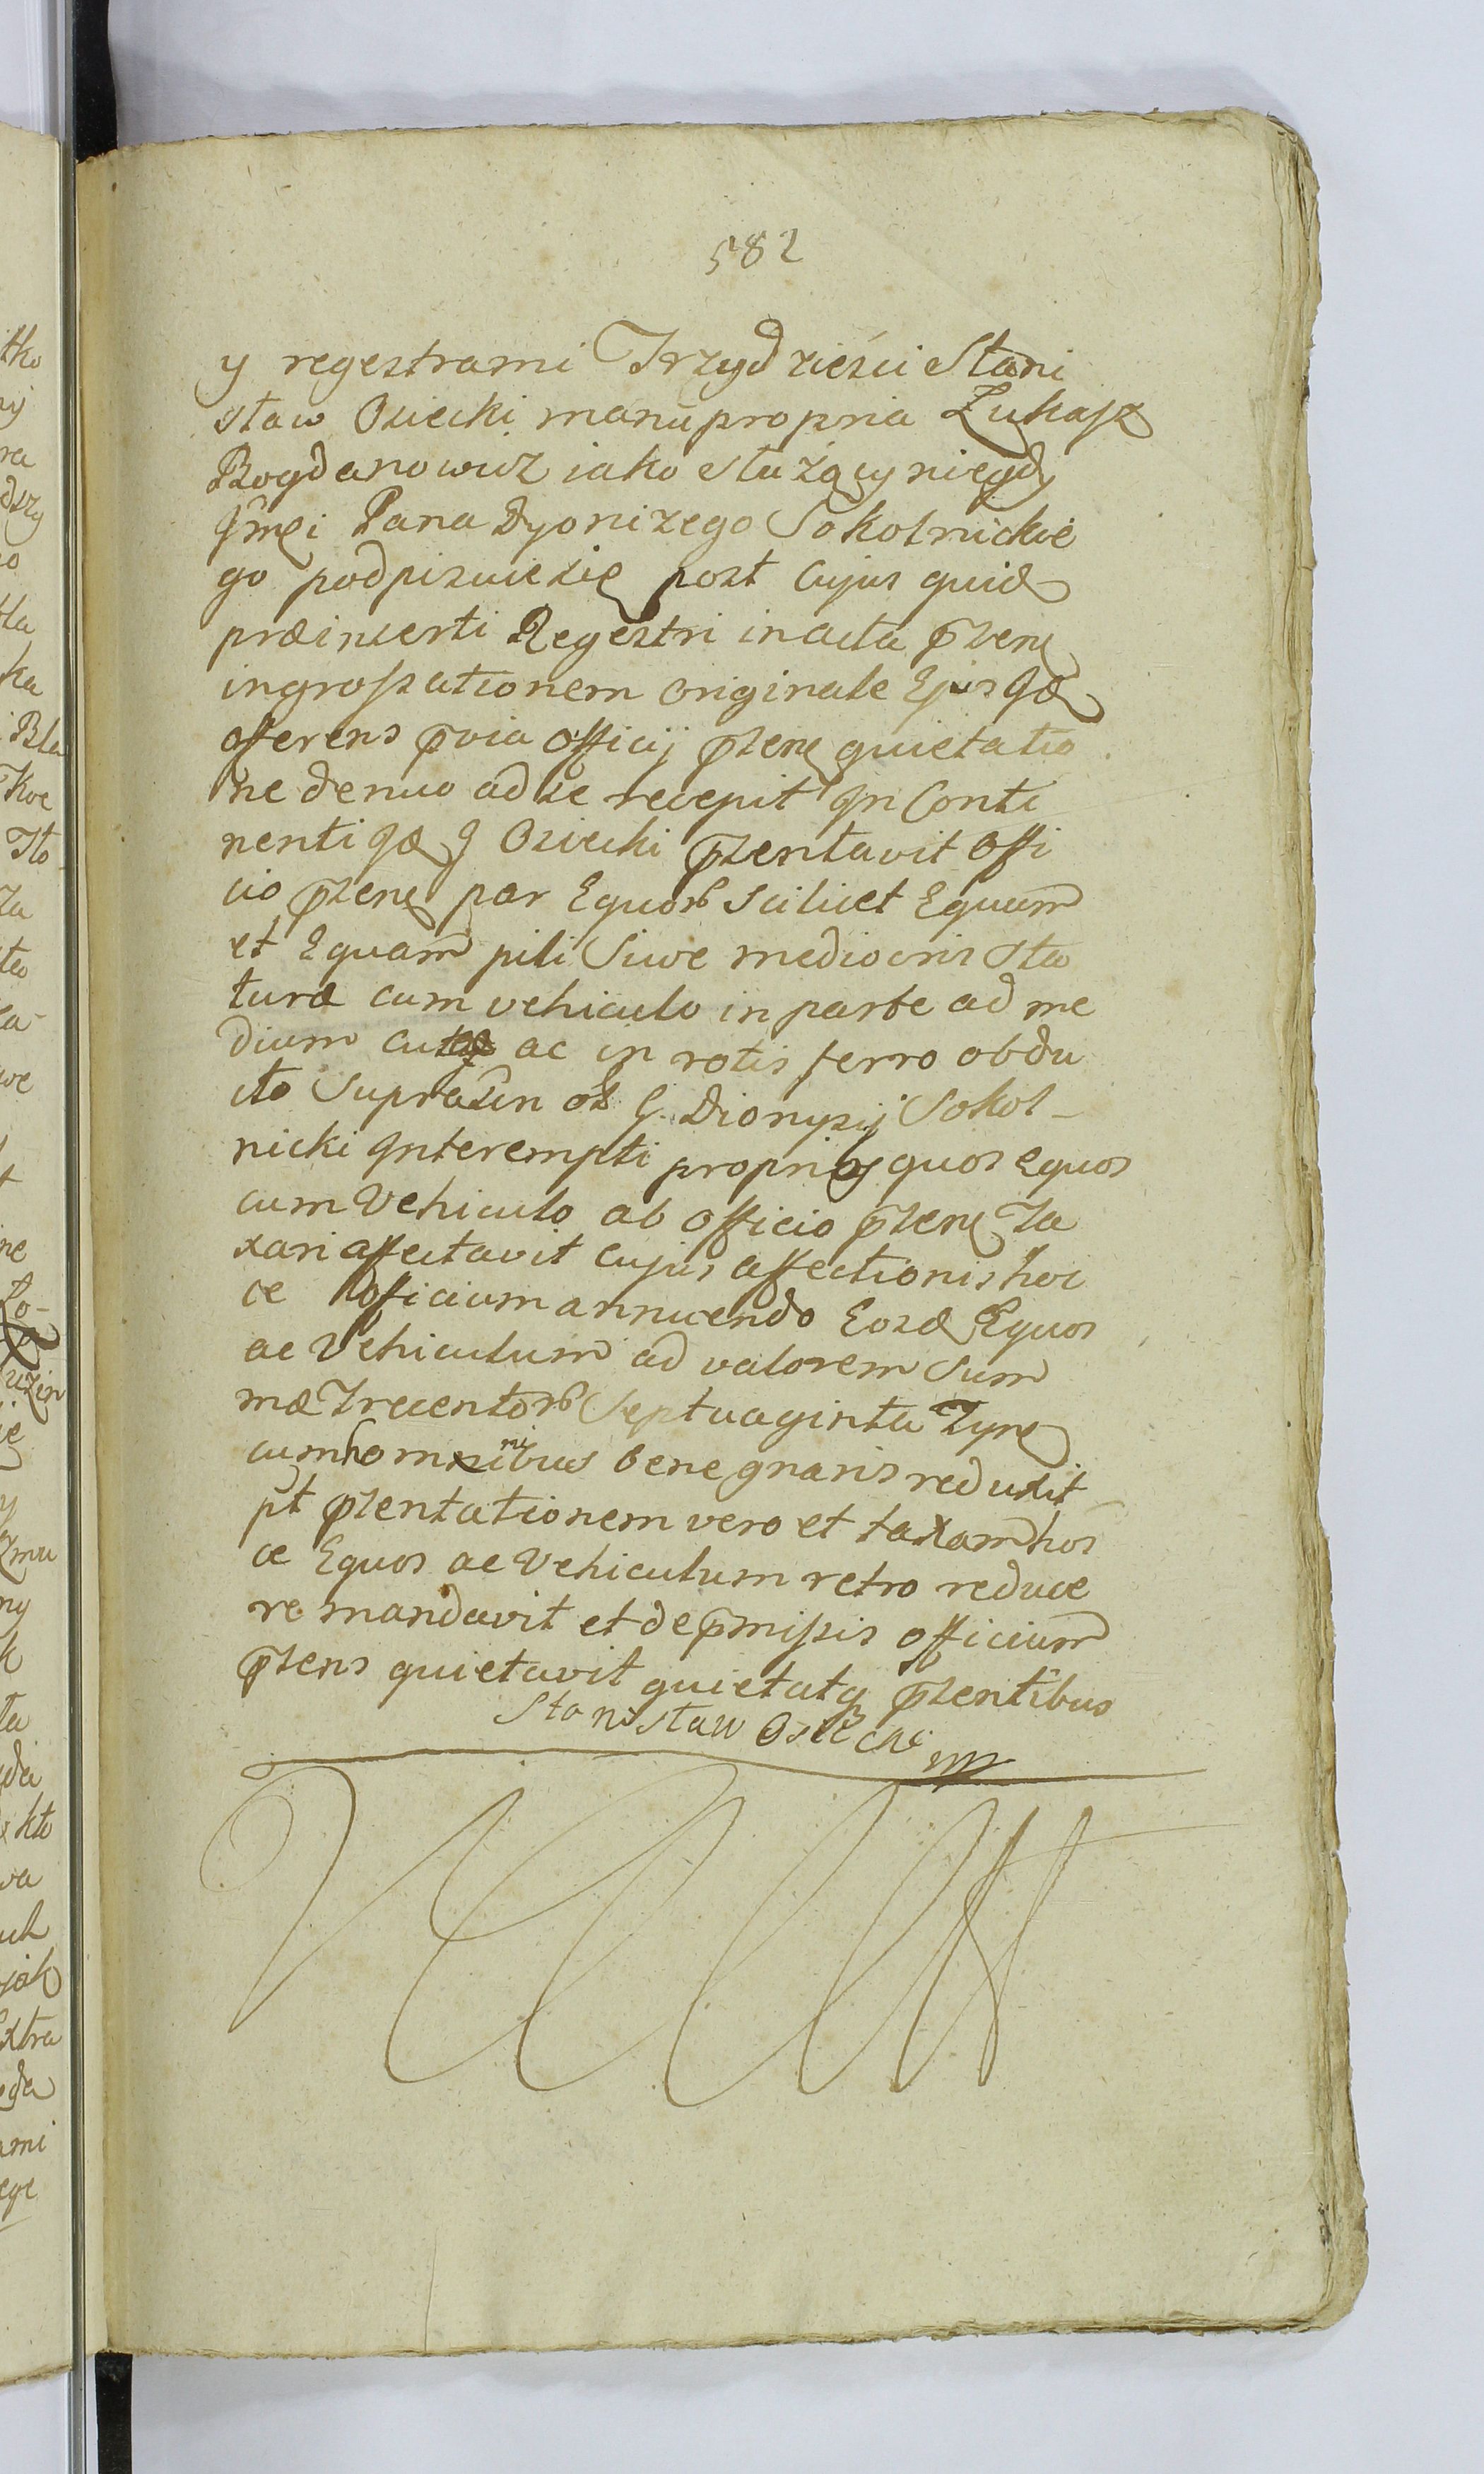 582
y regestrami Trzydzieści Stani
sław Osiecki manu propria Łukasz
Bogdanowicz iako służący niegdy
Jmći Pana Dyonizego Sokolnickie
go podpisuie się post cujus quid
præinserti Regestri in acta p̃sens
ingrossationem originale Ejus Id
offerens p̃via officij p̃sens quietatio
ne denuo ad se recepit In Conti
nenti Id G Osiecki p̃sentavit Offi
cio p̃sens par Equor̃ Scilicet Equum
et Equam pili Siwe mediocris sta
turæ cum vehiculo in parte ad me
dium ac in rotis ferro obdu
cto Suprascin G. Dionysij Sokol-
nicki Interempti proprios quos equos
cum Vehiculo ab officio p̃sens Ta
xari affectavit cujus affectionis hoc
ce officium annuendo Eosd Equos
ac Vehiculum ad valorem Sum
mæ Trecentor̃ Septuaginta Tynf
cum hominibus bene gnaris reduxit
pt p̃sentationem vero et taxam hos
ce Equos ac Vehiculum retro reduce
re mandavit et de p̃missis officium
p̃sens quietavit quietatq p̃sentibus
Stanisław Osiecki mp